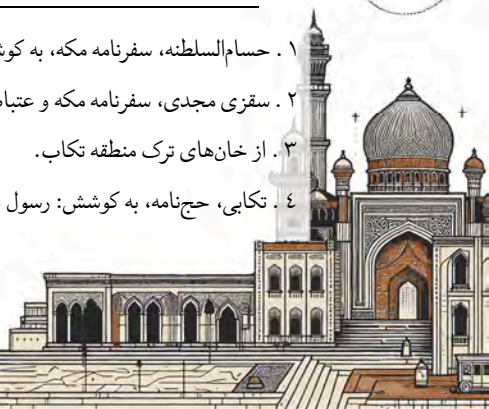 ۱ . حسام‌السلطنه، سفرنامه مکه، به
۲ . سقزی مجدی، سفرنامه مکه و
۳ . از خان‌های ترک منطقه تکاب.
٤ . تکابی، حج‌نامه، به کوشش: رسول